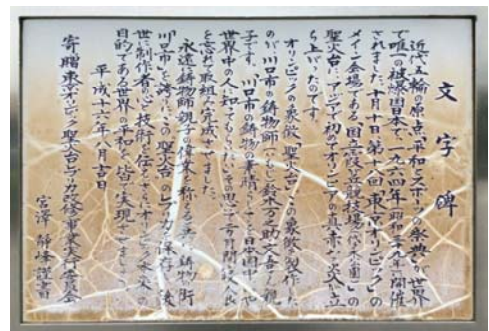 文字碑
近代五輪の原点「平和とスポーツの祭典」が世界
で唯一の被爆国日本で、一九六四年(昭和三十九年)に開催
されました。十月十日第十八回「東京オリンピック」の
メイン会場である「国立霞ヶ丘競技場(代々木公園)」の
聖火台に、アジアで初めてオリンピアの真赤な炎が立
ち上がったのです。
オリンピックの象徴「聖火台」この象徴を製作した
のが、川口市の鋳物師(いもじ)鈴木万之助・文吾さん親
子です。川口市の鋳物の素晴らしさを日本国中や
世界中の人に知ってもらいたいその思いで間、寝食
を忘れ取組み完成させました。
永遠に鋳物師親子の偉業を称えると共に鋳物の街
川口市を誇りに、この聖火台のレプリカを保存し後
世に制作者の心と技術を伝え、さらにオリンピック本来の
目的である世界の平和を皆で実現させましょう。
平成十六年八月吉日
寄贈 東京オリンピック聖火台レプリカ改修事業実行委員会
宮澤静峰謹書